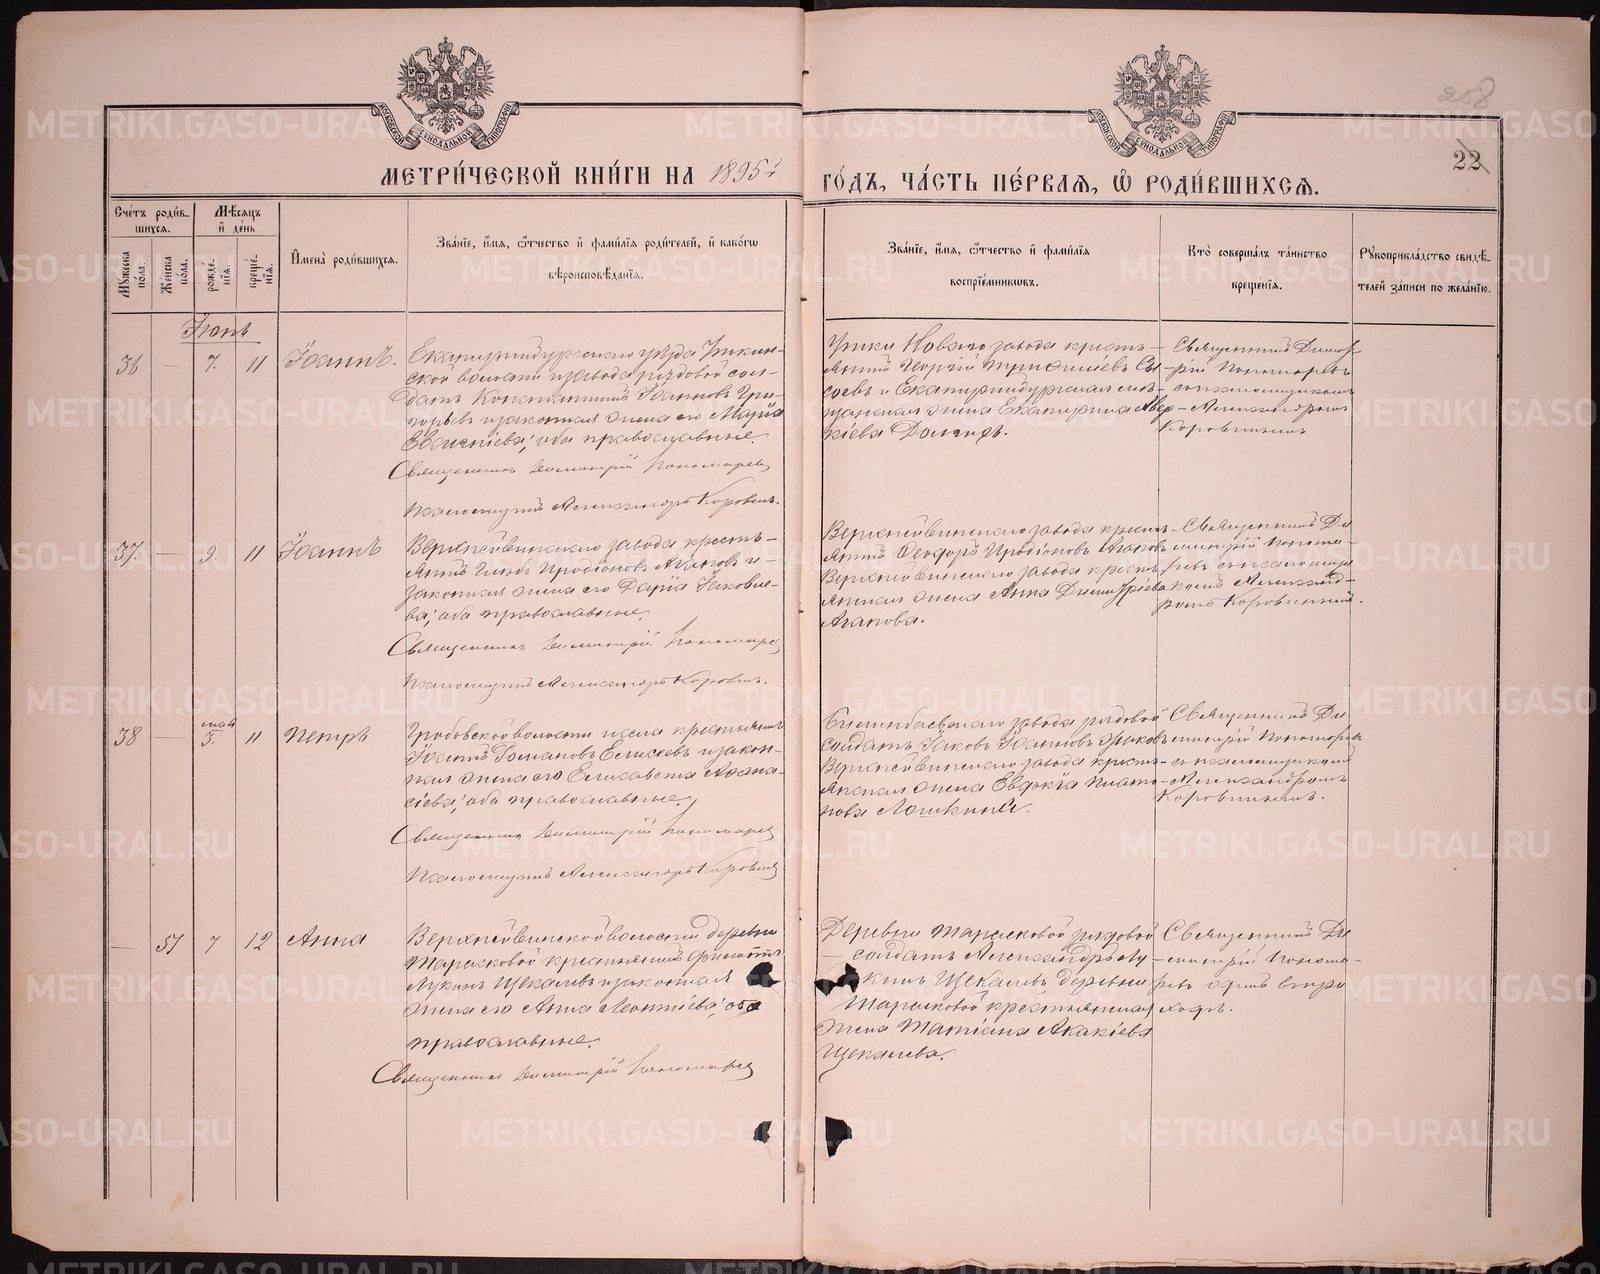 МОСКОВСКОЙ СѴНОДАЛЬНОЙ ТИПОГРАФІИ
МОСКОВСКОЙ СѴНОДАЛЬНОЙ ТИПОГРАФІИ
258
22
МЕТРИ́ЧЕСКОЙ КНИ́ГИ НА 1895 й
ГО́ДЪ, ЧА́СТЬ ПЕ́РВАЯ, Ѡ҆ РОДИ́ВШИХСѦ.
Сче́тъ роди́в-
шихсѧ.
Мꙋ́жеска по́ла.
Же́нска по́ла.
Мѣ́сѧцъ и҆ де́нь
рожде́-
нїѧ.
креще́-
нїѧ.
И҆мена̀ роди́вшихсѧ.
Зва́нїе, и҆́мѧ, ѻ҆́тчество и҆ фами́лїѧ роди́телей, и҆ како́гѡ
вѣроисповѣ́данїѧ.
Зва́нїе, и҆́мѧ, ѻ҆́тчество и҆ фами́лїѧ
воспрїе́мникѡвъ.
Кто̀ соверша́лъ та́инство
креще́нїѧ.
Рꙋкоприкла́дство свидѣ́-
телей за́писи по жела́нїю.
Іюнь
36 — 7. 11 Іоаннъ.
Екатеринбургскаго уѣзда Уткин-
ской волости и завода рядовой сол-
датъ Константинъ Іоанновъ Гри-
горьевъ и законная жена его Марія
Евгеніева; оба православные.
Священникъ Димитрій Пономаревъ
Псаломщикъ Александръ Коровинъ.
Утки Новаго завода кресть-
янинъ Георгій Трифиліевъ Сы-
соевъ и Екатеринбургская
жена Екатерина Авер-
кіева
Священникъ Димит-
рій Пономаревъ
съ псаломщикомъ
Александромъ
Коровинымъ
37. — 9. 11 Іоаннъ
Верхнейвинскаго завода кресть-
янинъ Глѣбъ Иродіоновъ Агаповъ и
законная жена его Дарія Іаковле-
ва; оба православные.
Священникъ Димитрій Пономаревъ
Псаломщикъ Александръ Коровинъ.
Верхнейвинскаго завода кресть-
янинъ Ѳеодоръ Иродіоновъ Агаповъ
Верхнейвинскаго завода кресть-
янская жена Анна Димитріева
Агапова.
Священникъ Ди-
митрій Понома-
ревъ съ псаломщи-
комъ Александ-
ромъ Коровинымъ.
38 — май 5. 11 Петръ
Гробовской волости и села крестьянинъ
Іоаннъ Романовъ Елисеевъ и закон-
ная жена его Елисавета Аѳана-
сіева; оба православные.
Священникъ Димитрій Пономаревъ
Псаломщикъ Александръ Коровинъ
Билимбаевскаго завода рядовой
солдатъ Іаковъ Іоанновъ
Верхнейвинскаго завода кресть-
янская жена Евдокія Плато-
нова Лошкина.
Священникъ Ди-
митрій Пономаревъ
съ псаломщикомъ
Александромъ
Коровинымъ.
— 51 7 12 Анна
Верхнейвинской волости деревни
Тарасковой крестьянинъ Филиппъ
Лукинъ Щекалевъ и законная
жена его Анна Леонтіева; оба
православные.
Священникъ Димитрій Пономаревъ
Деревни Тарасковой рядовой
солдатъ Александръ Лу-
кинъ Щекалевъ деревни
Тарасковой крестьянская
жена Татіана Акакіева
Щекалева.
Священникъ Ди-
митрій Понома-
ревъ одинъ въ при-
ходѣ.
METRIKI.GASO-URAL.RU